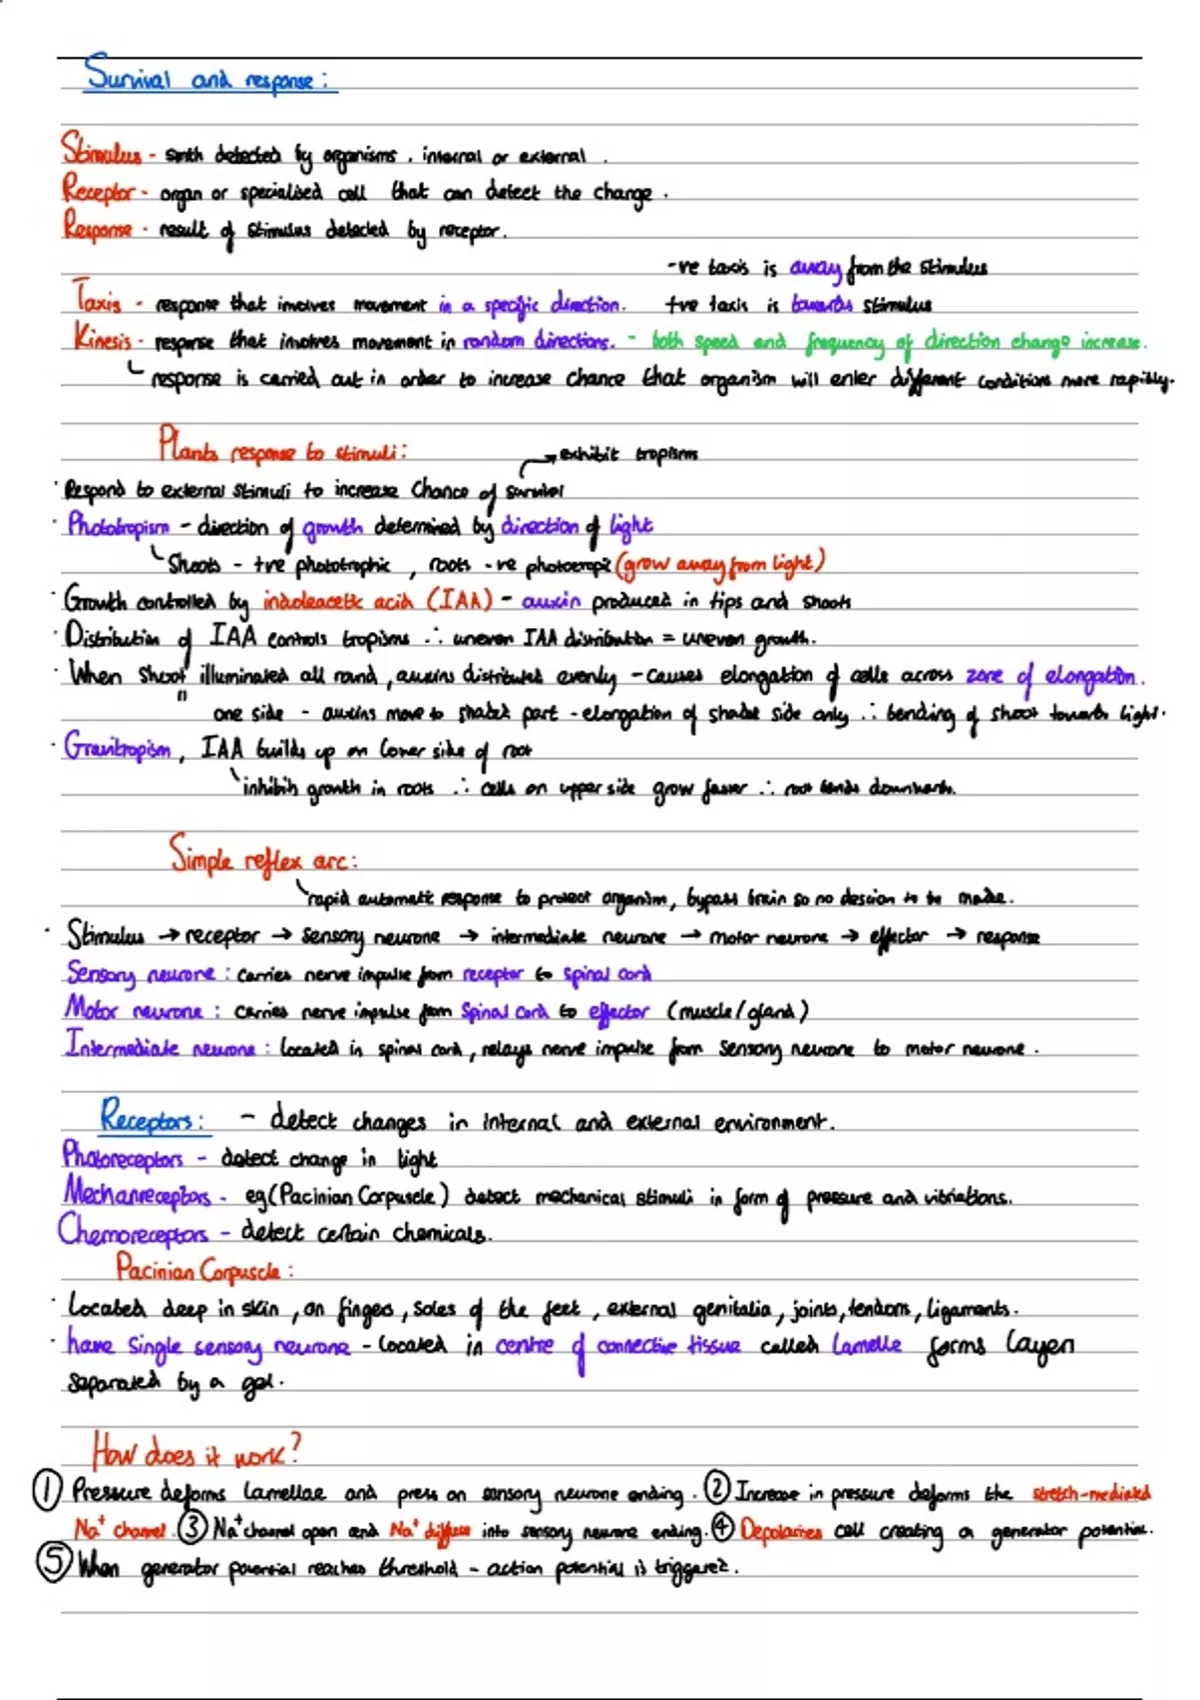 Survival and response:
Stimulus - smth detected by organisms. internal or external.
Receptor - organ or specialised cell that can detect the change.
Response - result of stimulus detected by receptor.
-ve taxis is away from the stimulus
Taxis - response that involves movement in a specific direction. +ve taxis is towards stimulus
Kinesis - response that involves movement in random directions. - both speed and frequency of direction change increase.
response is carried out in order to increase chance that organism will enter different conditions more rapidly.
Plants response to stimuli:
exhibit tropisms
· Respond to external stimuli to increase chance of survival
· Phototropism - direction of growth determined by direction of light
Shoots - +ve phototrophic, roots -ve (grow away from light)
· Growth controlled by indoleacetic acid (IAA) - auxin produced in tips and shoots
· Distribution of IAA controls tropisms ∴ uneven IAA distribution = uneven growth.
· When shoot illuminated all round, auxins distributed evenly - causes elongation of cells across zone of elongation.
" one side - auxins move to shaded part - elongation of shade side only ∴ bending of shoot towards light.
· Gravitropism, IAA builds up on lower side of root
inhibits growth in roots ∴ cells on upper side grow faster ∴ root bends downwards.
Simple reflex arc:
rapid automatic response to protect organism, bypass brain so no descion to be made.
· Stimulus → receptor → sensory neurone → intermediate neurone → motor neurone → effector → response
Sensory neurone: carries nerve impulse from receptor to spinal cord
Motor neurone: carries nerve impulse from spinal cord to effector (muscle/gland)
Intermediate neurone: located in spinal cord, relays nerve impulse from sensory neurone to motor neurone.
Receptors: - detect changes in internal and external environment.
Photoreceptors - detect change in light
Mechanreceptors - eg (Pacinian Corpuscle) detect mechanical stimuli in form of pressure and vibrations.
Chemoreceptors - detect certain chemicals.
Pacinian Corpuscle:
· Located deep in skin, on fingers, soles of the feet, external genitalia, joints, tendons, ligaments.
· have single sensory neurone - located in centre of connective tissue called lamelle forms layer
separated by a gel.
How does it work?
① Pressure deforms lamellae and press on sensory neurone ending. ② Increase in pressure deforms the stretch-mediated
Na⁺ channel. ③ Na⁺ channel open and Na⁺ diffuse into sensory neurone ending. ④ Depolarises cell creating a generator potential.
⑤ When generator potential reaches threshold - action potential is triggered.